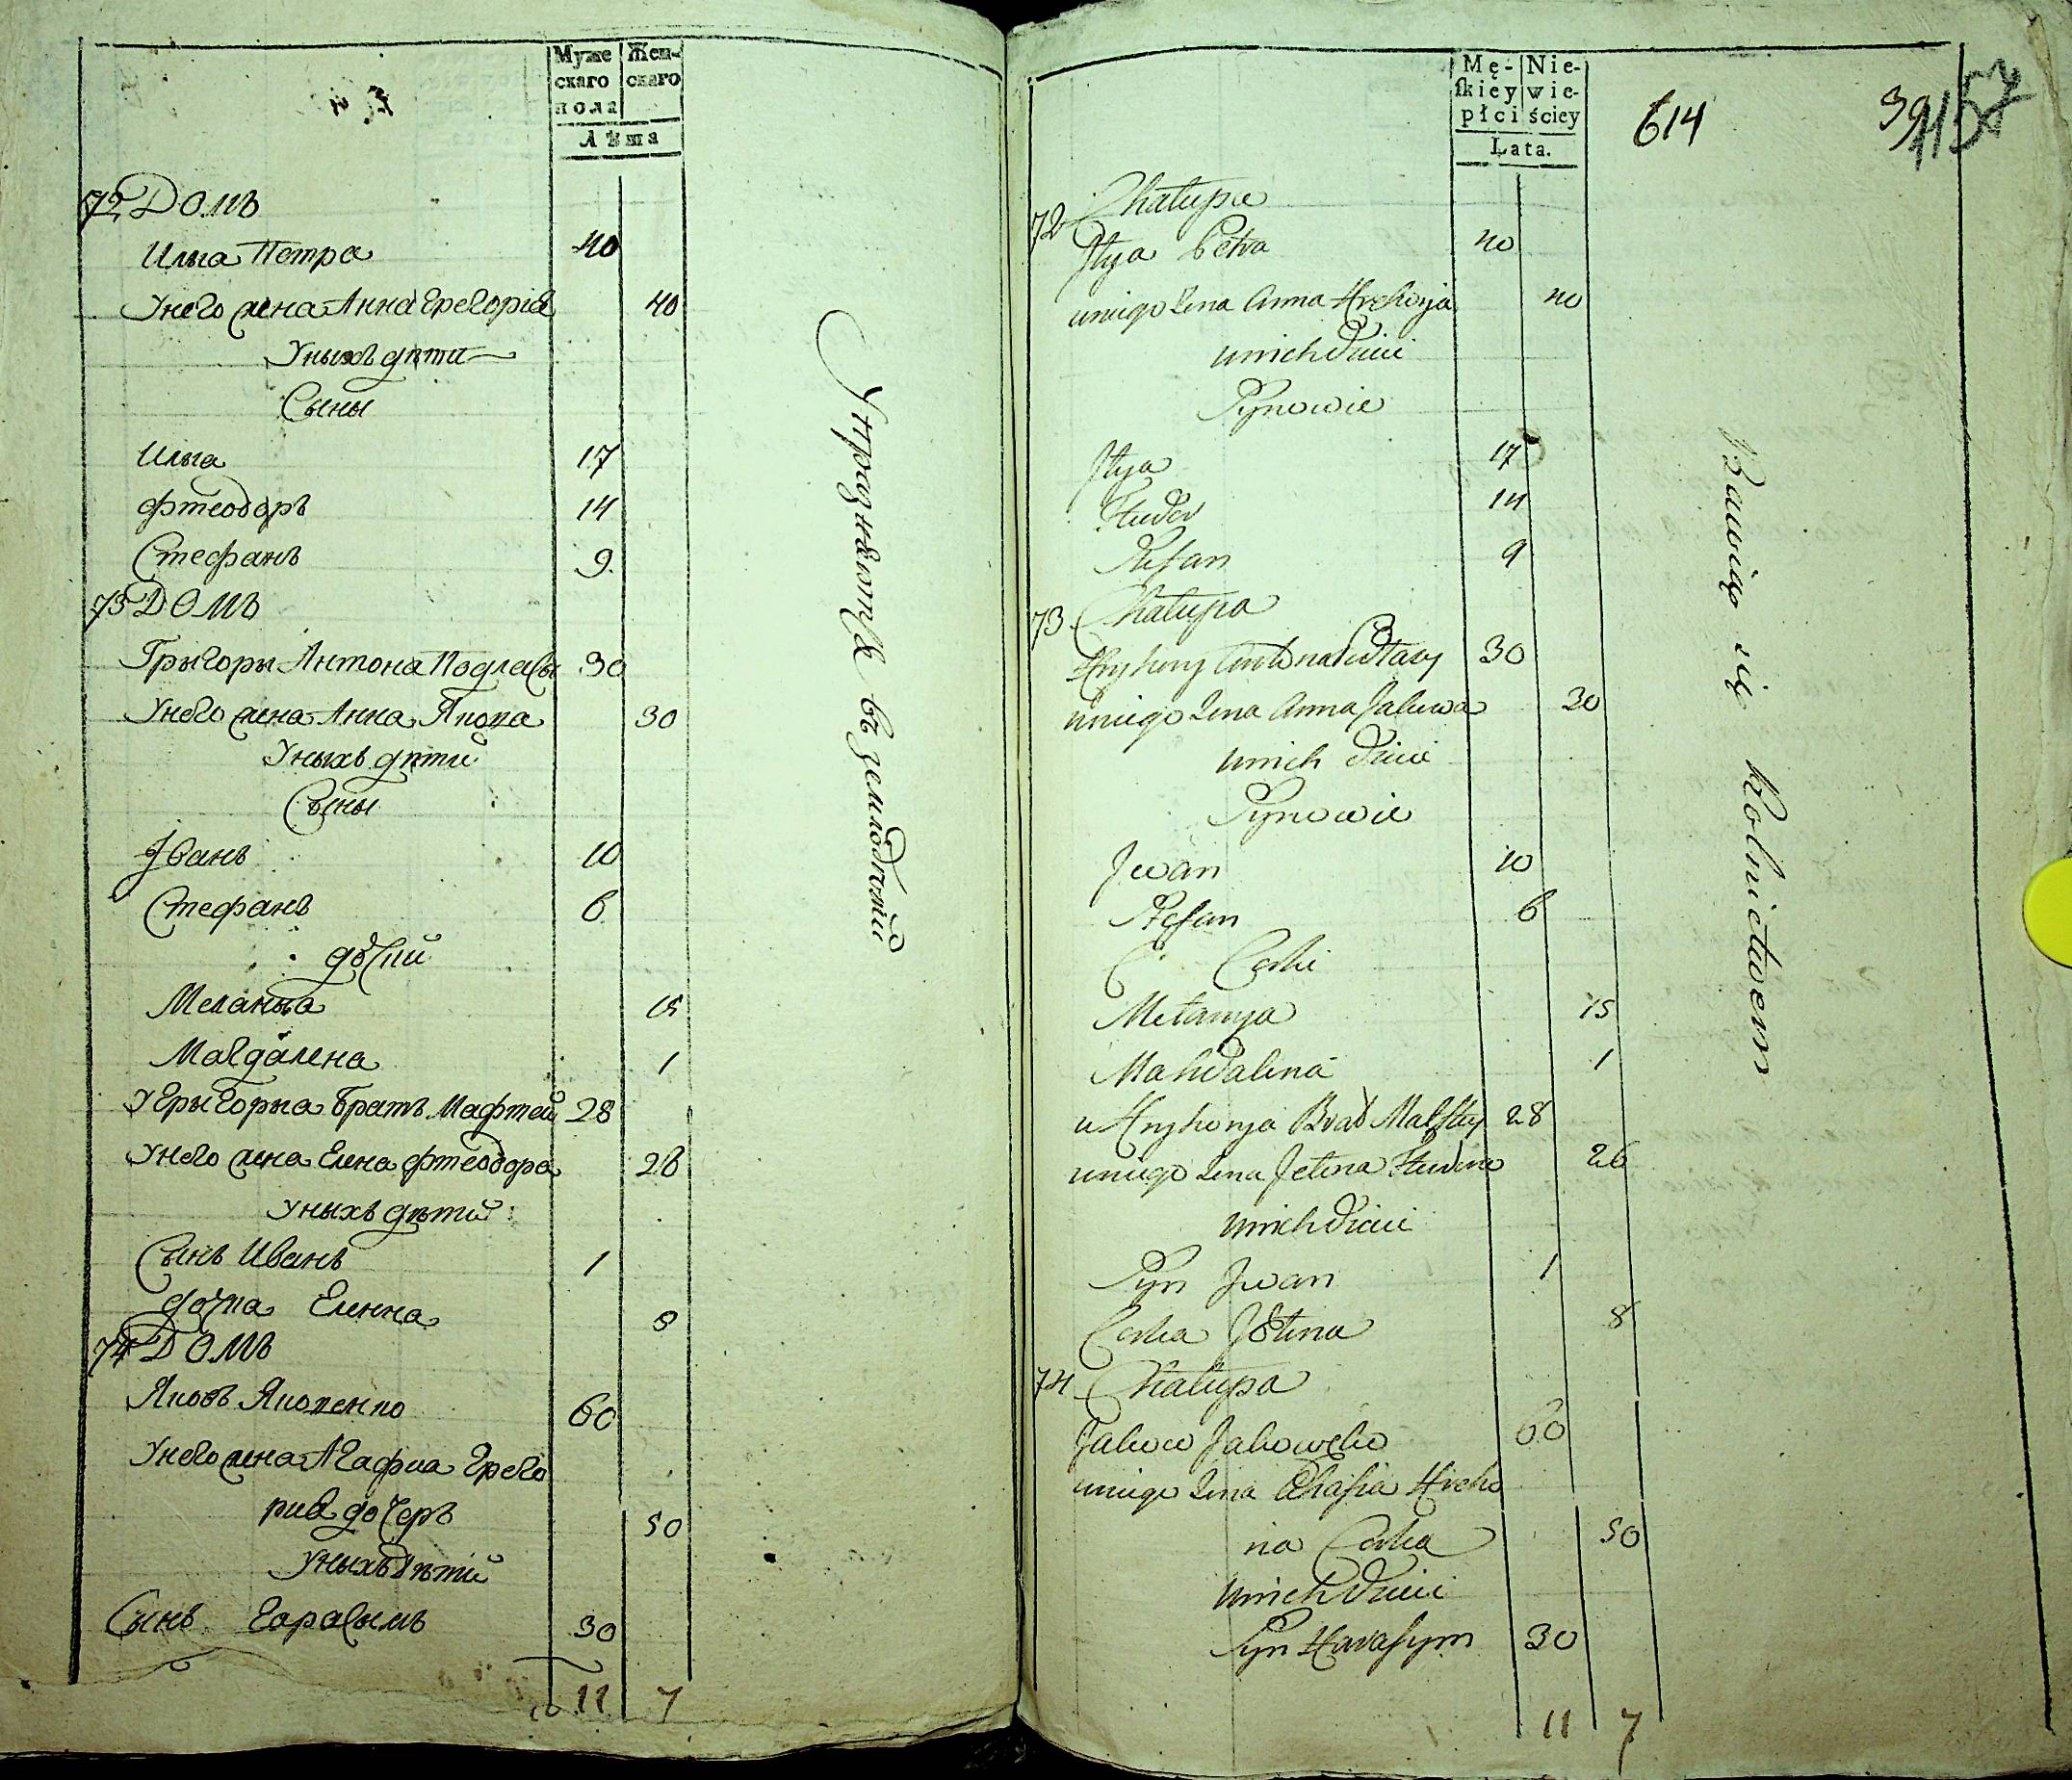 Муже Жен-
скаго скаго
пола
Лѣта
72 Домъ
Илья Петра 40
Унего жена Анна Григорія 40
Уныхъ дѣти
Сыны
Илья 17
Фтеодоръ 14
Стефанъ 9
73 Домъ
Грыгоры Антона Подласы 30
Унего жена Анна Якова 30
Уныхъ дѣтий
Сыны
Іванъ 10
Стефанъ 6
дочки
Меланья 15
Магдалена 1
У Грыгорыа братъ Мафтей 28
Унего жена Елена Фтеодора 26
Уныхъ дѣтий
Сынъ Иванъ 1
дочка Еленна 8
74 Домъ
Яковъ Яковенко 60
Унего жена Агафиа Григо
рия дочеръ 50
Уныхъ дѣтий
Сынъ Гарасымъ 30
11 7
Упражняются въ земледѣлій
Mę- Nie-
skiey wie-
płci ściey
Lata.
614
39
1157
72 Chałupa
Jlya Petra 40
uniego żena Anna Hrehorja 40
unich dzieci
Synowie
Jlya 17
Ftudor 14
Stefan 9
73 Chałupa
Hryhory Antona Podłasy 30
uniego żena Anna Jakowa 30
unich dzieci
Synowie
Jwan 10
Stefan 6
Corki
Mełanya 15
Mahdalena 1
u Hryhorya Brat Maftey 28
uniego żena Jelena Ftudora 26
unich dzieci
Syn Jwan 1
Corka Jelina 8
74 Chałupa
Jakow Jakowenko 60
uniego żena Ahafia Hreho
ria Corka 50
unich dzieci
Syn Harasym 30
11 7
Bawią się Rolnictwem